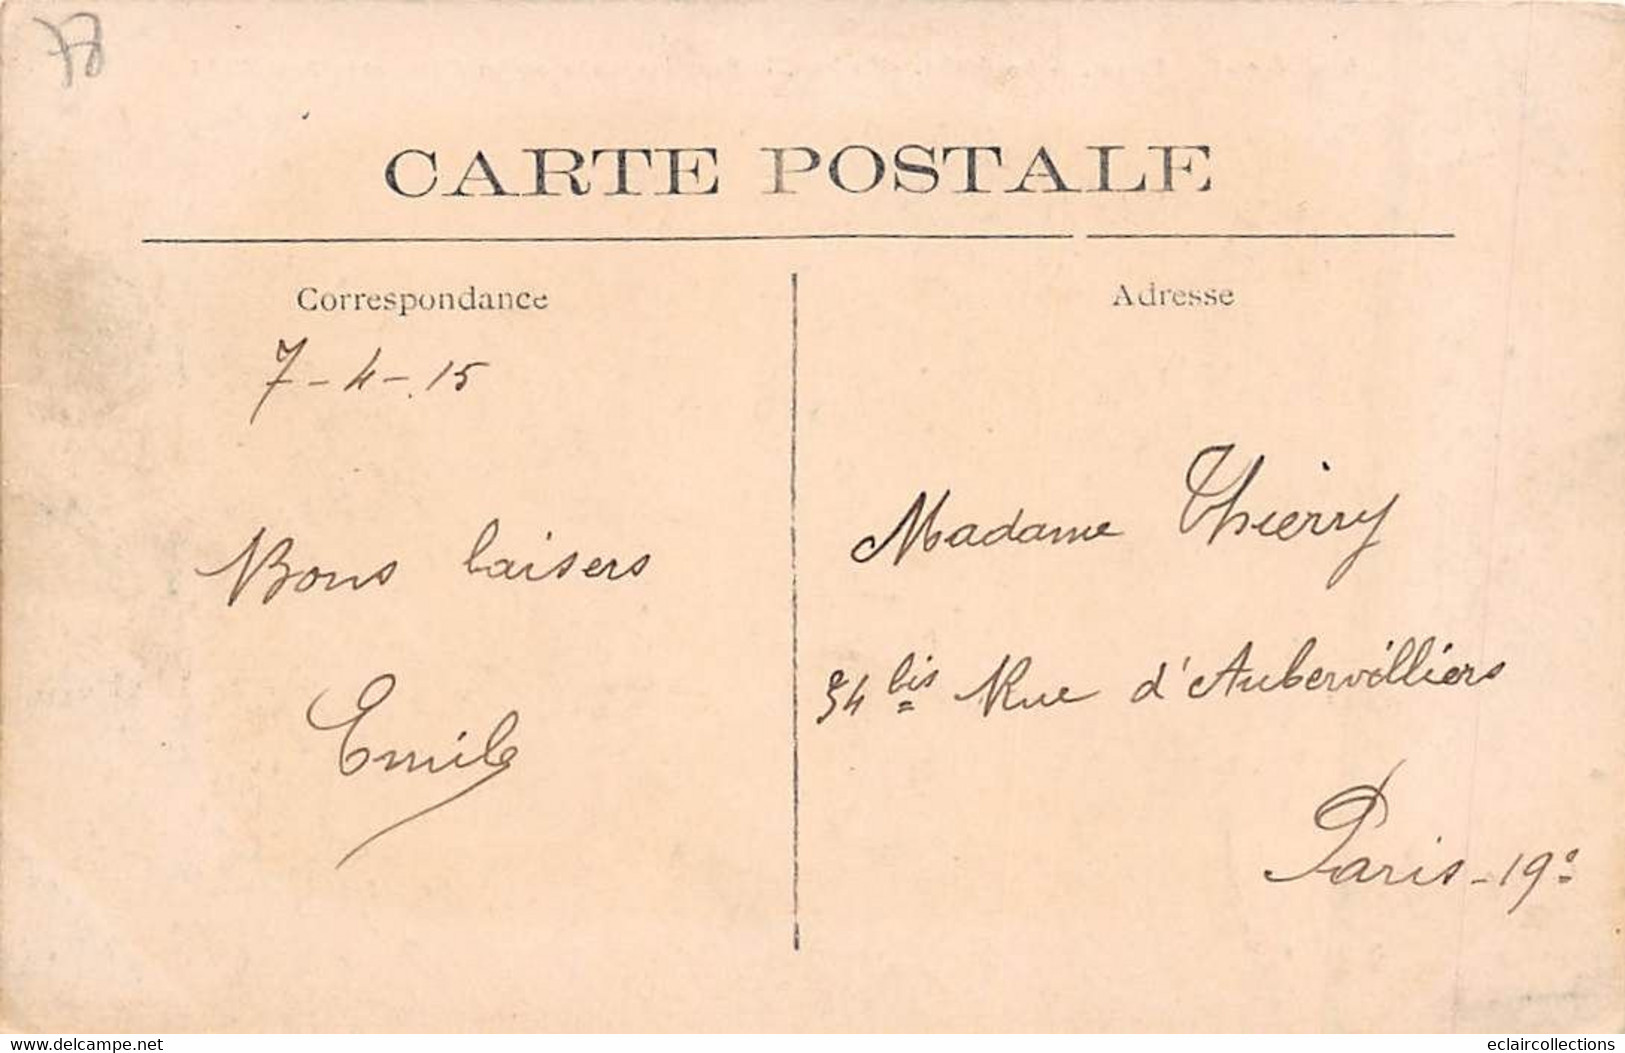 78
CARTE POSTALE
Correspondance
7-4-15
Bons baisers
Emile
Adresse
Madame Thierry
54 bis Rue d'Aubervilliers
Paris-19e
Delcampe.net
eclaircollections